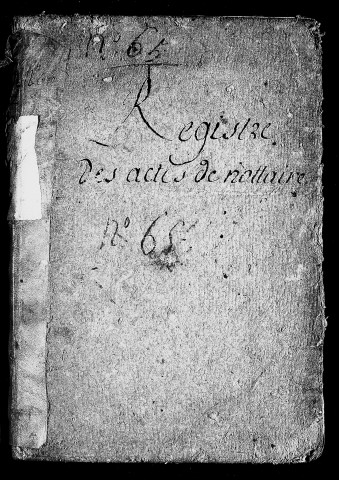 N° 65
Registre
Des actes de nottaire
N° 65